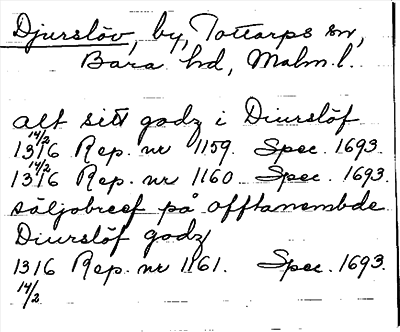 Djurslöv, by, Tottarps sn,
Bara hd, Malm. l.
alt sitt godz i Diurslöf
1316 14/2 Rep. nr 1159. Spec. 1693.
1316 14/2 Rep. nr 1160. Spec. 1693.
säljobreef på offtanembde
Diurslöf godz
1316 Rep. nr 1161. Spec. 1693.
14/2